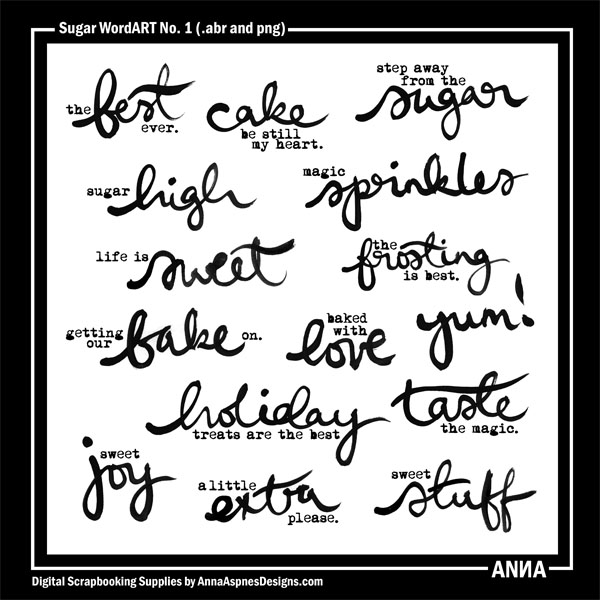 Sugar WordART No. 1 (.abr and png)
the best ever.
cake be still my heart.
step away from the sugar
sugar high
magic sprinkles
life is sweet
the frosting is best.
getting our bake on.
baked with love
yum!
holiday treats are the best
taste the magic.
sweet joy
a little extra please.
sweet stuff
ANNA
Digital Scrapbooking Supplies by AnnaAspnesDesigns.com